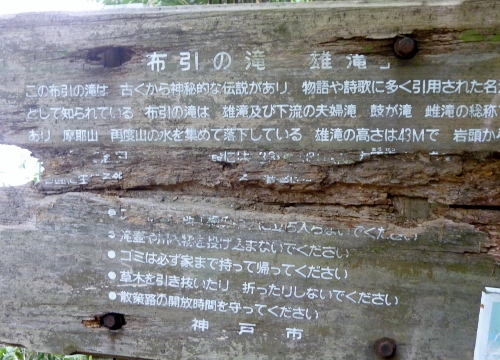 布引の滝 雄滝
この布引の滝は 古くから神秘的な伝説があり 物語や詩歌に多く引用された名
として知られている 布引の滝は 雄滝及び下流の夫婦滝 鼓が滝 雌滝の総称
あり 摩耶山 再度山の水を集めて落下している 雄滝の高さは43Mで 岩頭か
に立ち入らないでください
滝壷や 投げ込まないでください
●ゴミは必ず家まで持って帰ってください
●草木を引き抜いたり 折ったりしないでください
●散策路の開放時間を守ってください
神戸市